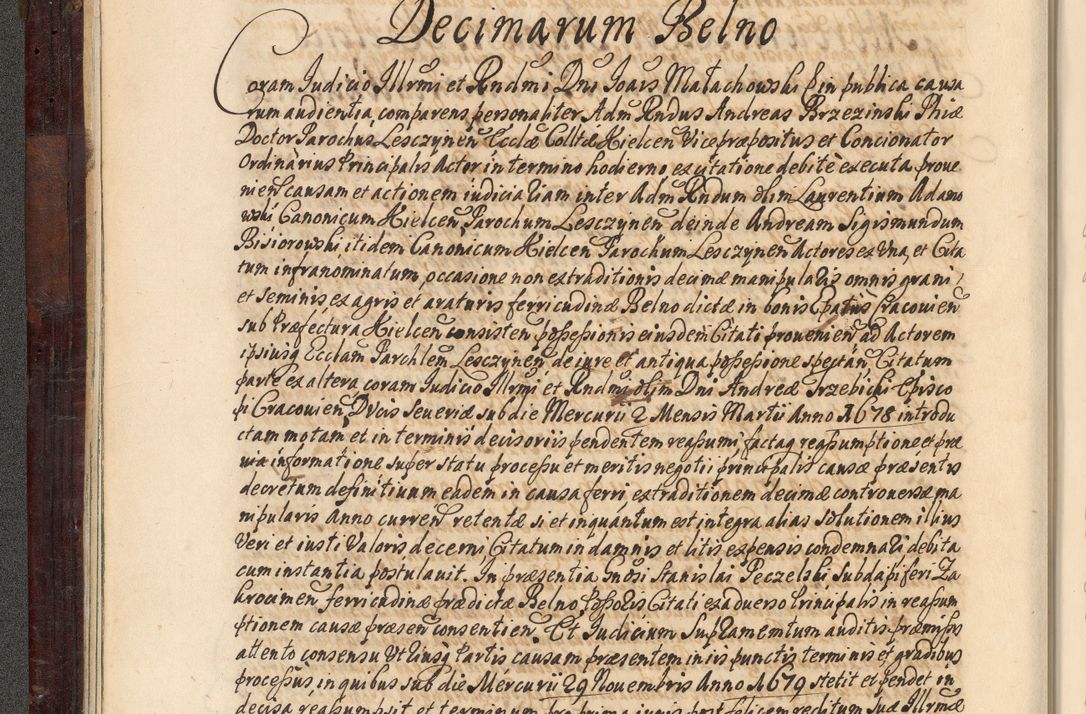 Decimarum Belno
Coram Judicio Illrmi et Rndmi Dni Joais Małachowski &in publica causa
rum audientia, comparens personaliter Adm Rndus Andreas Brzezinski Phiæ
Doctor Parochus Lesczynen Ecclæ Colltæ Kielcen Vicepræpositus et Concionator
Ordinarius Principalis Actor in termino hodierno ex citatione debitè executa prove
nien causam et actionem iudicialiam inter Adm Rndum olim Laurentium Adamo
wski Canonicum Kielcen Parochum Lesczynen deinde Andream Sigismundum
Bisiorowski, itidem Canonicum Kielcen Parochum Lesczynen Actores ex Vna, et Cita
tum infranominatum, occasione non extraditionis decimæ manipulalis omnis grani
et seminis ex agris et araturis ferricudinæ Belno dictæ in bonis Epatus Cracovien
sub Præfectura Kielcen consisten possessionis eiusdem Citati provenien ad Actorem
ipsiusq Ecclam Parchlem Lesczynen de iure et antiqua possessione spectan Citatum
parte ex altera coram Iudicio Illrmi et Rndmi olim Dni Andreæ Trzebicki Episco
pi Cracovien Ducis Severiæ sub die Mercurii 2 Mensis Martii Anno 1678 introdu
ctam motam et in terminis decisoriis pendentem reassumi, factaq reassumptione et præ
via informatione super statu processu et meritis negotii principalis causæ præsentis
decretum definitiuum eadem in causa ferri extraditionem decimæ controversæ ma
nipularis Anno curren retentæ si et inquantum est integra alias solutionem illius
Veri et iusti Valoris decerni Citatum in damnis et litis expensis condemnari debita
cum instantia postulavit. In præsentia Gnosi Stanislai Peczelski Subdapiferi Za
krocimen ferricudinæ prædictæ Belno Possoris Citati ex adverso Principalis in reassum
ptionem causæ præsen consentien. Et Iudicium Suprамemtum auditis præmissis
attento consensu Utriusq Partis causam præsentem in iis punctis terminis et gradibus
processus, in quibus sub die Mercurii 29 Novembris Anno 1679 stetit et pendet in
decisa reassumpsit et terminum pro prima iuris post felicem reditum Suæ Illrmæ